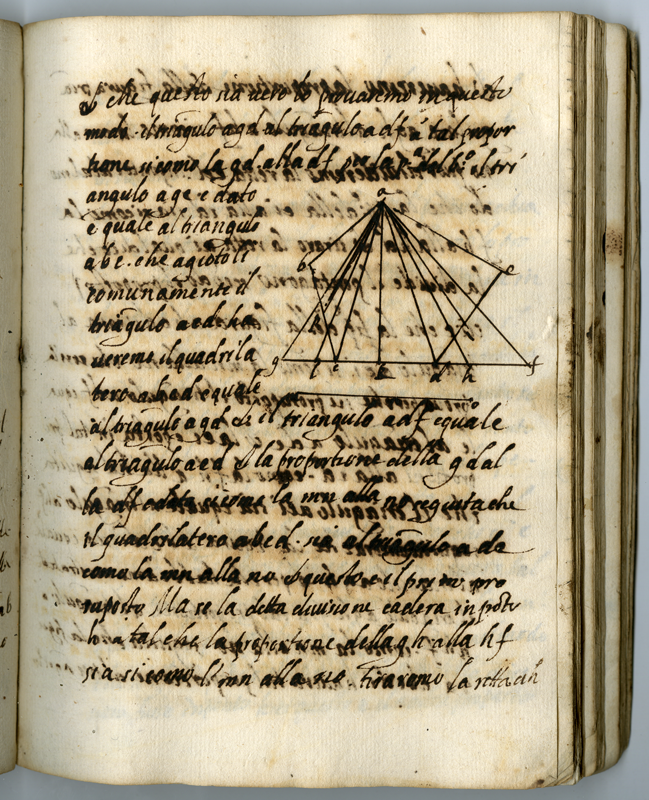 che questo sia vero lo provaremo in questo
modo. il triãgulo agd al triãgulo adf á tal propor
tione si como la gd. alla df per la p.ª del 6.º el tri
angulo age e dato
e quale al triangulo
abe. che agiotoli
comunamente il
triãgulo aed ha
veremo il quadrila
tero abed equale
al triãgulo agd & il triangulo adf equale
al triãgulo aed & la proportione della gd al
la df e data si como la mn alla no seguita che
il quadrilatero abed. sia al triãgulo ade
como la mn alla no & questo e il primo pro
suposto Ma se la detta divisione cadera in põto
h. a tal che la proportione della gh alla hf
sia si como l' mn alla no. tiraremo la retta ah
a
b
e
g
l
c
k
d
h
f
o